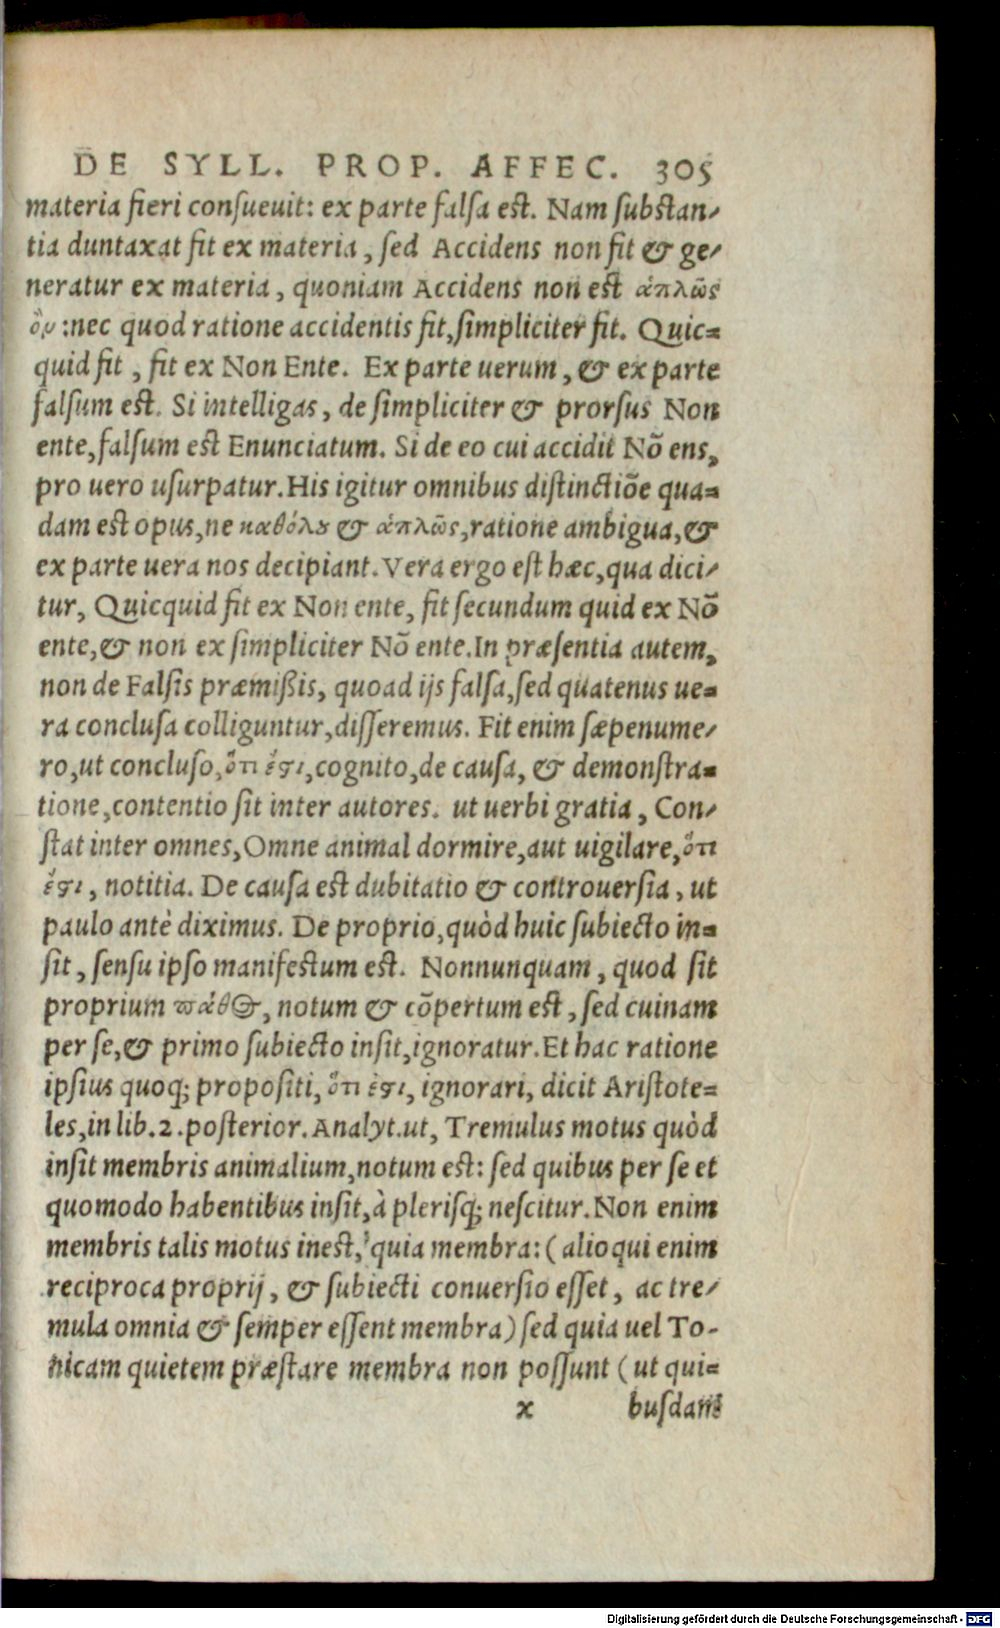 DE SYLL. PROP. AFFEC. 305
materia fieri consueuit: ex parte falsa est. Nam substan-
tia duntaxat fit ex materia, sed Accidens non fit & ge-
neratur ex materia, quoniam Accidens non est ἁπλῶς
ὂν: nec quod ratione accidentis fit, simpliciter fit. Quic=
quid fit, fit ex Non Ente. Ex parte uerum, & ex parte
falsum est. Si intelligas, de simpliciter & prorsus Non
ente, falsum est Enunciatum. Si de eo cui accidit Nō ens,
pro uero usurpatur. His igitur omnibus distinctiōe qua=
dam est opus, ne καθόλȣ & ἁπλῶς, ratione ambigua, &
ex parte uera nos decipiant. Vera ergo est hæc, qua dici-
tur, Quicquid fit ex Non ente, fit secundum quid ex Nō
ente, & non ex simpliciter Nō ente. In præsentia autem,
non de Falsis præmißis, quoad ijs falsa, sed quatenus ue=
ra conclusa colliguntur, disseremus. Fit enim sæpenume-
ro, ut concluso, ὅτι ἔϛι, cognito, de causa, & demonstra=
tione, contentio sit inter autores. ut uerbi gratia, Con-
stat inter omnes, Omne animal dormire, aut uigilare, ὅτι
ἔϛι, notitia. De causa est dubitatio & controuersia, ut
paulo antè diximus. De proprio, quòd huic subiecto in=
sit, sensu ipso manifestum est. Nonnunquam, quod sit
proprium πάθος, notum & cōpertum est, sed cuinam
per se, & primo subiecto insit, ignoratur. Et hac ratione
ipsius quoq; propositi, ὅτι ἔϛι, ignorari, dicit Aristote=
les, in lib. 2. posterior. Analyt. ut, Tremulus motus quòd
insit membris animalium, notum est: sed quibus per se et
quomodo habentibus insit, à plerisq; nescitur. Non enim
membris talis motus inest, quia membra: (alioqui enim
reciproca proprij, & subiecti conuersio esset, ac tre-
mula omnia & semper essent membra) sed quia uel To-
nicam quietem præstare membra non possunt (ut qui=
x busdam
Digitalisierung gefördert durch die Deutsche Forschungsgemeinschaft - DFG